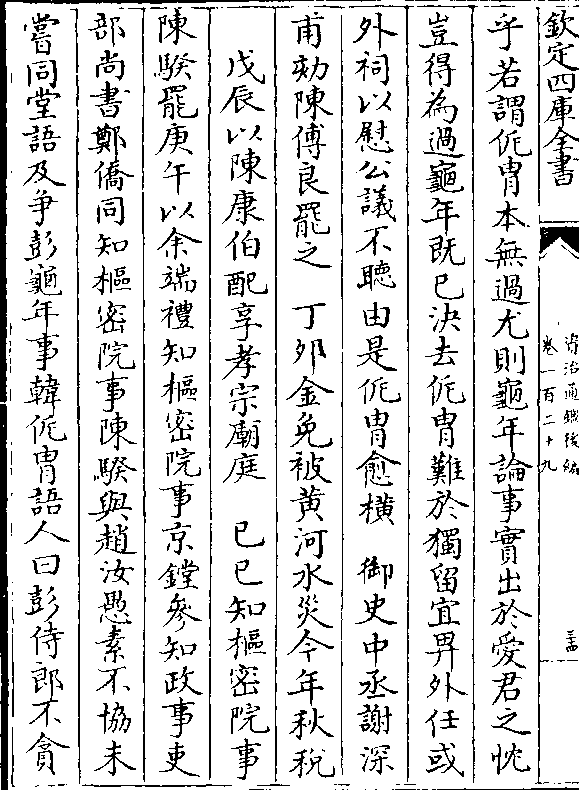 欽定四庫全書
資治通鑑後編
卷一百二十九
乎若謂侂胄本無過尤則龜年論事實出於愛君之忱
豈得為過龜年既已決去侂胄難於獨留宜畀外任或
外祠以慰公議不聽由是侂胄愈橫 御史中丞謝深
甫劾陳傅良罷之 丁夘金免被黄河水災今年秋稅
戊辰以陳康伯配享孝宗廟庭 己巳知樞密院事
陳騤罷庚午以余端禮知樞密院事京鏜參知政事吏
部尚書鄭僑同知樞密院事陳騤與趙汝愚素不協未
嘗同堂語及爭彭龜年事韓侂胄語人曰彭侍郎不貪